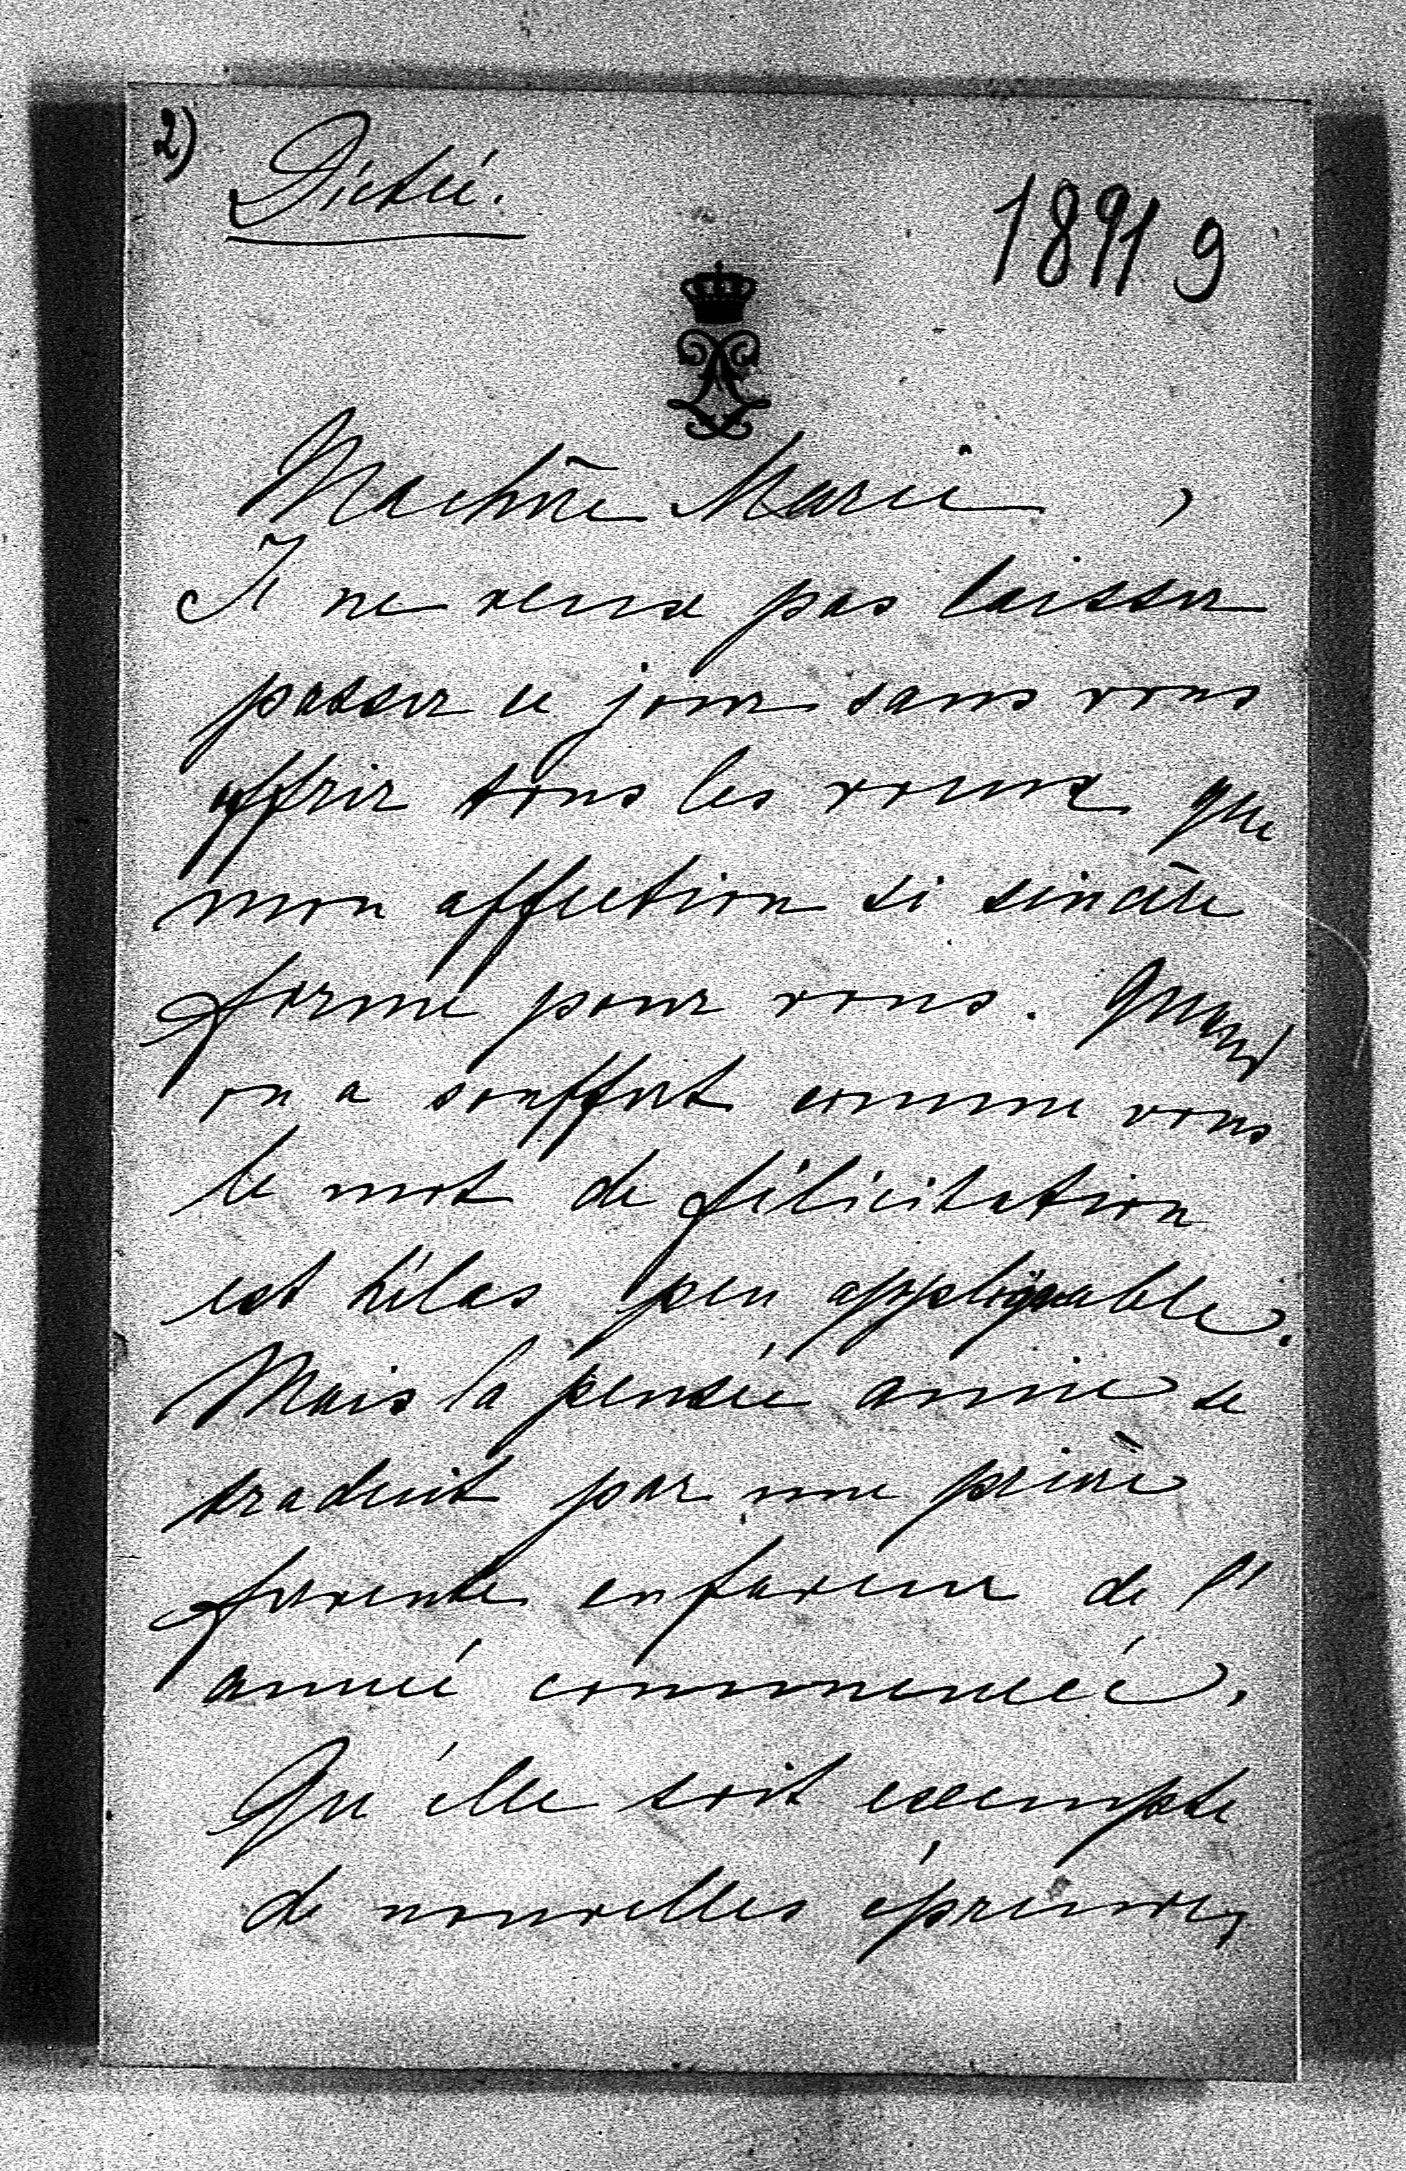 2)
Dictée.
1891 9
Ma chère Marie,
Je ne veux pas laisser
passer ce jour sans vous
offrir tous les voeux que
mon affection si sincère
forme pour vous. Quand
on a souffert comme vous
le mot de félicitation
est hélas peu appliquable.
Mais la pensée amie se
traduit par une prière
fervente en faveur de l'
année commencée.
Qu'elle soit exempte
de nouvelles épreuves,